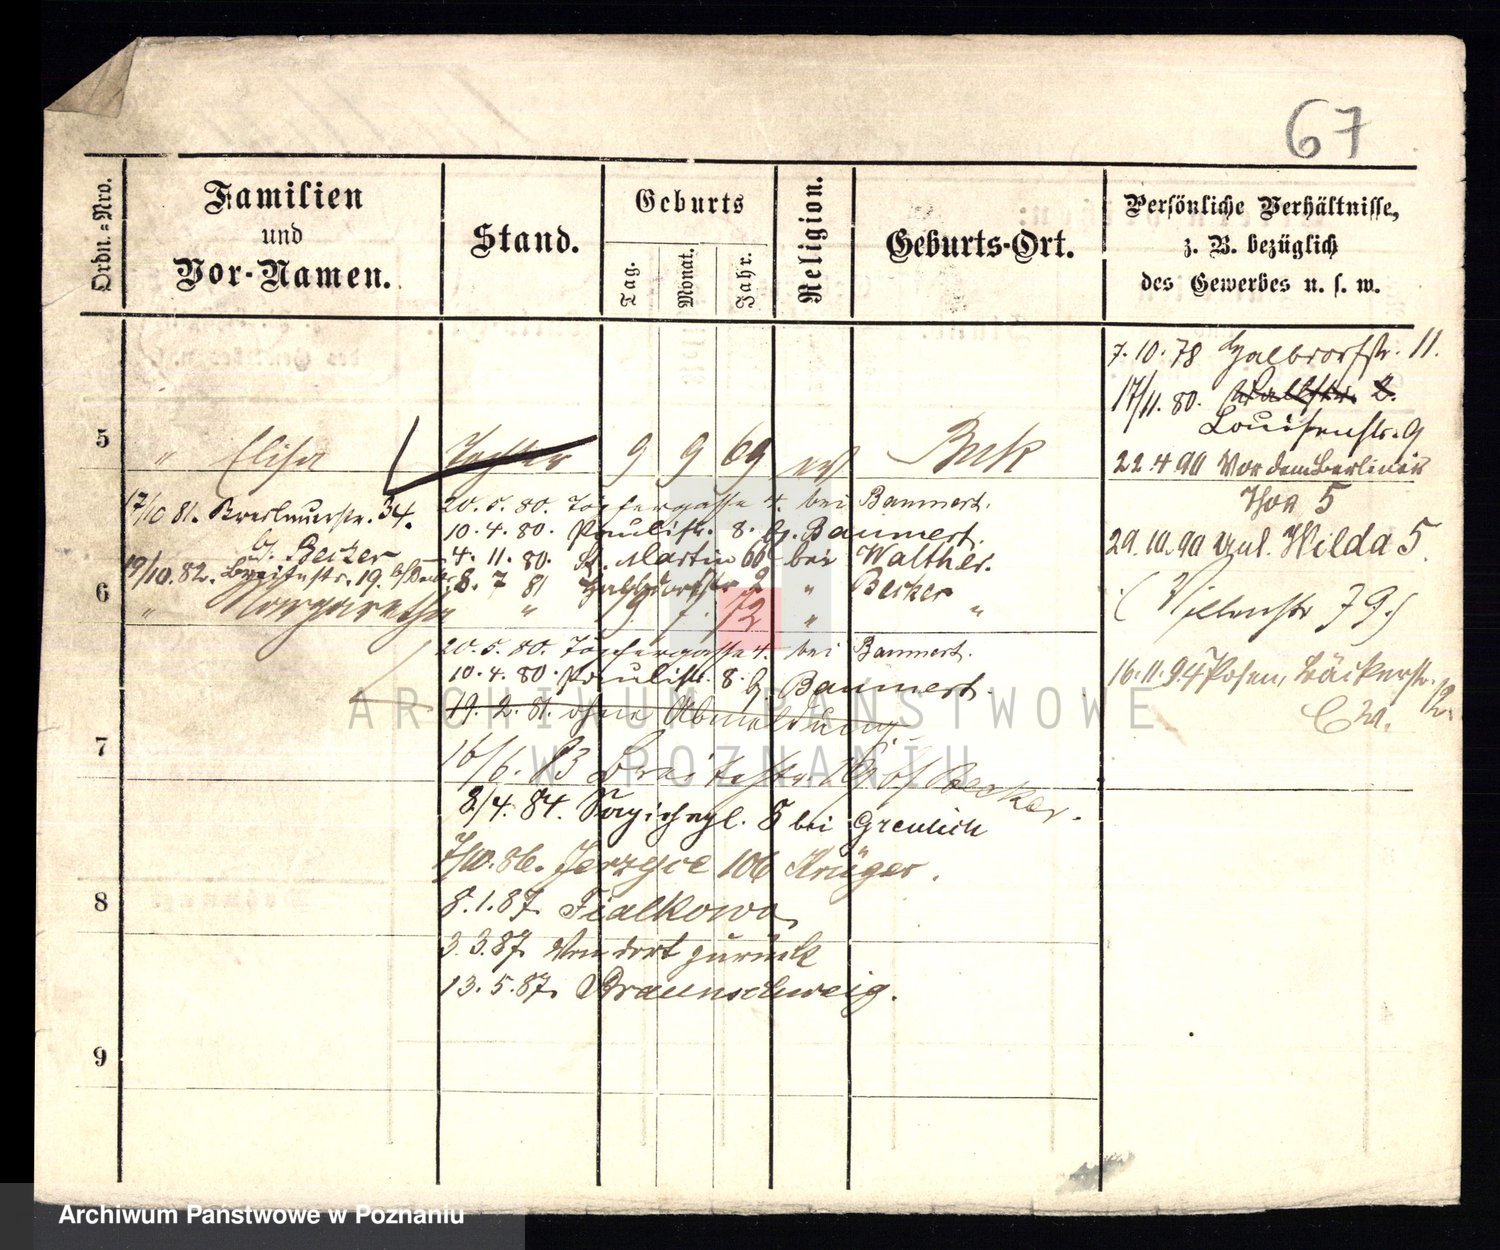 67
Ordn.-Nro.
Familien
und
Vor-Namen.
Stand.
Geburts
Tag.
Monat.
Jahr.
Religion.
Geburts-Ort.
Persönliche Verhältnisse,
z. B. bezüglich
des Gewerbes u. s. w.
7. 10. 78 Halbdorfstr. 11.
17/11. 80. 2.
Louisenstr. 9
5
" Elisa Tochter 9 9 69 ev Buk
22 4 90 Vor dem Berliner
Thor 5
17/10 81. Breslauerstr. 34.
b. Becker
20. 5. 80. Töpfergasse 4. bei Baumert.
10. 4. 80. Paulistr. 8. b. Baumert.
4. 11. 80. St. Martin 66 bei Walther.
29. 10. 90 Wilda 5
19/10. 82. Breitestr. 19. b/Becker
8. 7 81 Halbdorfstr 2 " Becker
6
" Margarethe " 9. 7. 72 " "
20. 5. 80. Töpfergasse 4. bei Baumert.
10. 4. 80. Paulistr. 8. b. Baumert.
19. 2. 81. ohne Abmeldung
16. 11. 94 Posen, Bäckerstr.
7
16/6. 83 Breitestr. Becker.
8/4. 84. Sapiehapl. 5 bei Greulich
7/10. 86. Jerzyce 106 Krüger.
8
8. 1. 87. Fialkowo
3. 3. 87. Von dort zurück
13. 5. 87. Braunschweig.
9
ARCHIWUM PAŃSTWOWE
W POZNANIU
Archiwum Państwowe w Poznaniu